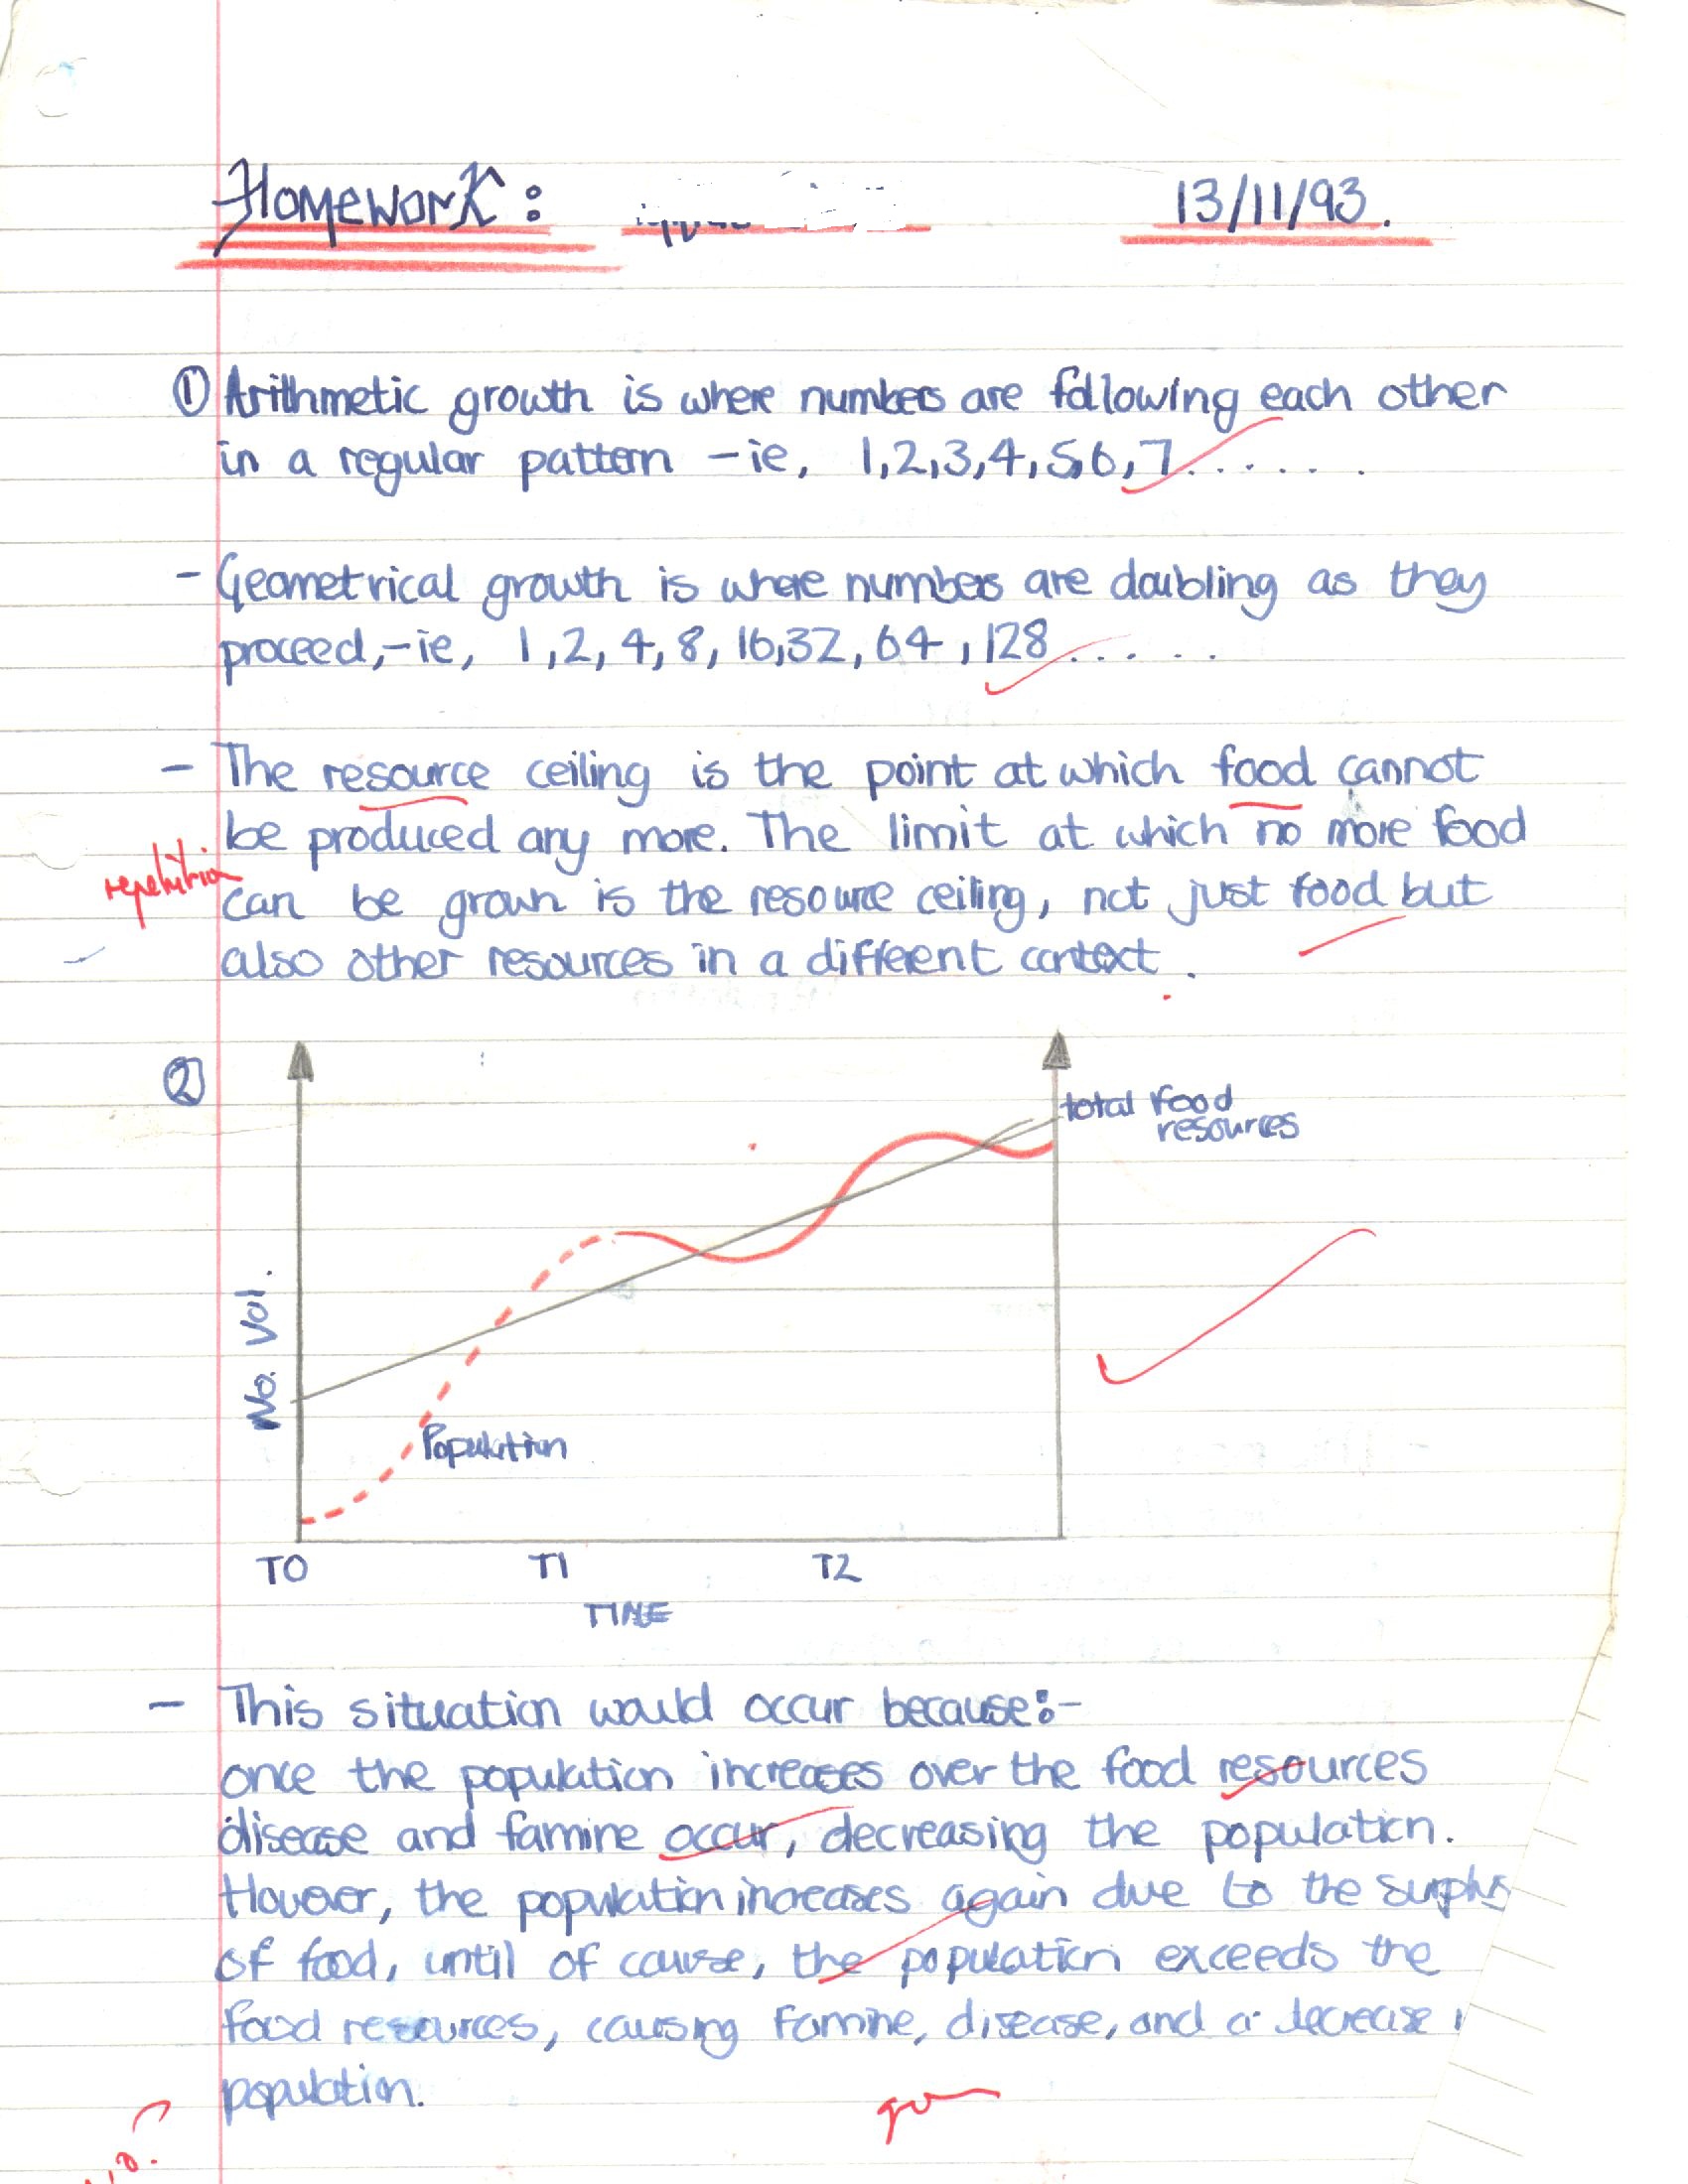 Homework: 13/11/93.
① Arithmetic growth is where numbers are following each other
in a regular pattern - ie, 1,2,3,4,5,6,7......
- Geometrical growth is where numbers are doubling as they
proceed, - ie, 1,2,4,8,16,32,64,128.....
- The resource ceiling is the point at which food cannot
be produced any more. The limit at which no more food
repetition
can be grown is the resource ceiling, not just food but
also other resources in a different context.
②
total food
resources
No. Vol.
Population
T0 T1 T2
TIME
- This situation would occur because:-
once the population increases over the food resources
disease and famine occur, decreasing the population.
However, the population increases again due to the surplus
of food, until of cause, the population exceeds the
food resources, causing famine, disease, and a decrease
population.